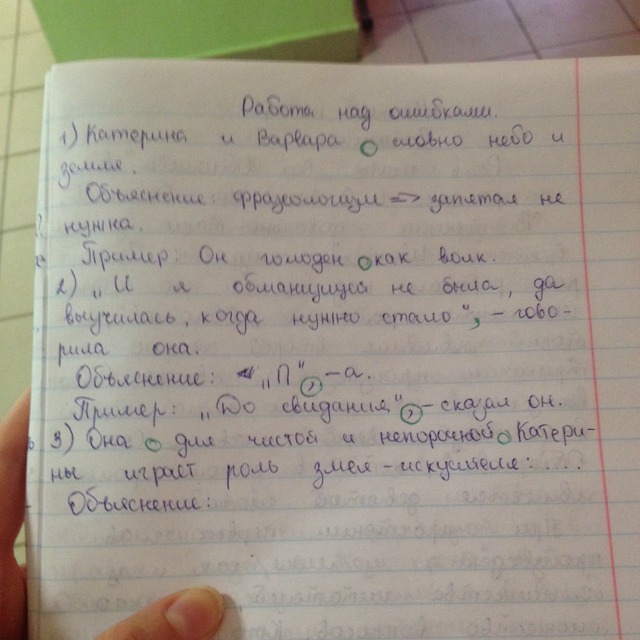 Работа над ошибками.
1) Катерина и Варвара словно небо и
земля.
Объяснение: фразеологизм => запятая не
нужна.
Пример: Он голоден как волк.
2) „И я обманщица не была, да
выучилась, когда нужно стало“, – гово-
рила она.
Объяснение: „П“, – а.
Пример: „До свидания“, – сказал он.
3) Она для чистой и непорочной Катери-
ны играет роль змея-искусителя: ...
Объяснение: